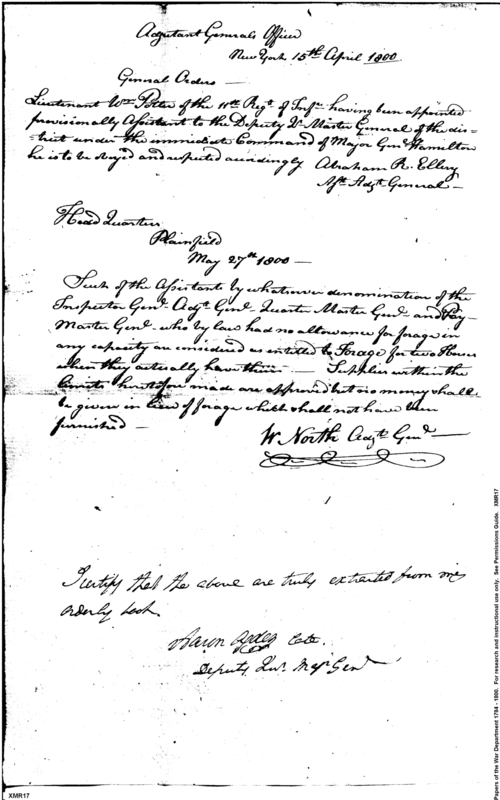 Adjutant Generals Office
New York 15th April 1800
General Orders —
Lieutenant Wm Potter of the 11th Regt of Infy having been appointed
provisionally Assistant to the Deputy Qr Master General of the dis-
trict under the immediate Command of Major Genl Hamilton
he is to be obeyed and respected accordingly Abraham R. Ellery
Asst Adjt General —
Head Quarters
Plainfield
May 27th 1800 —
Such of the Assistants by whatever denomination of the
Inspector Genl Adjt Genl Quarter Master Genl and Pay
Master Genl who by law had no allowance for forage in
any capacity are considered as entitled to Forage for two Horses
when they actually have them — Supplies within the
limits heretofore made are approved but no money shall
be given in lieu of forage which shall not have been
furnished —
W North Adjt Genl —
I certify that the above are truly extracted from my
orderly book
Aaron Ogden
Deputy Genl
XMR17
Papers of the War Department 1784 - 1800. For research and instructional use only. See Permissions Guide. XMR17